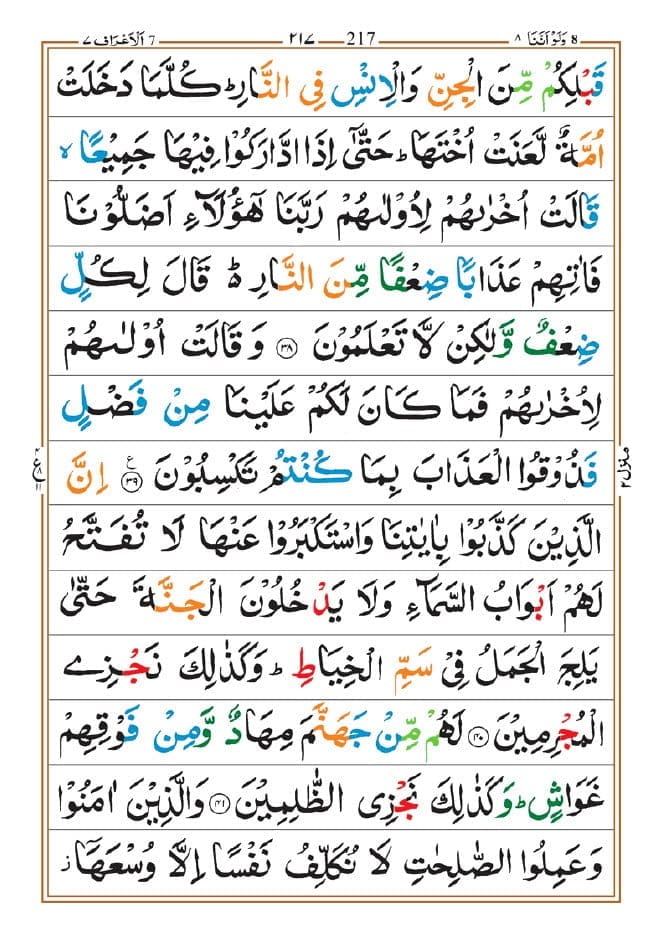 ٨ وَلَوْ اَنَّنَا ٨ 217 ـــ ٢١٧ 7 اَلْاَعْرَاف ٧
قَبْلِكُمْ مِّنَ الْجِنِّ وَالْاِنْسِ فِى النَّارِ ؕ كُلَّمَا دَخَلَتْ
اُمَّةٌ لَّعَنَتْ اُخْتَهَا ؕ حَتّٰۤى اِذَا ادَّارَكُوْا فِيْهَا جَمِيْعًا ۙ
قَالَتْ اُخْرٰىهُمْ لِاُوْلٰىهُمْ رَبَّنَا هٰۤؤُلَآءِ اَضَلُّوْنَا
فَاٰتِهِمْ عَذَابًا ضِعْفًا مِّنَ النَّارِ ؕ۬ قَالَ لِكُلٍّ
ضِعْفٌ وَّلٰكِنْ لَّا تَعْلَمُوْنَ ﴿۳۸﴾ وَقَالَتْ اُوْلٰىهُمْ
لِاُخْرٰىهُمْ فَمَا كَانَ لَكُمْ عَلَيْنَا مِنْ فَضْلٍ
فَذُوْقُوا الْعَذَابَ بِمَا كُنْتُمْ تَكْسِبُوْنَ ﴿۳۹﴾ ع اِنَّ
الَّذِيْنَ كَذَّبُوْا بِاٰيٰتِنَا وَاسْتَكْبَرُوْا عَنْهَا لَا تُفَتَّحُ
لَهُمْ اَبْوَابُ السَّمَآءِ وَلَا يَدْخُلُوْنَ الْجَنَّةَ حَتّٰى
يَلِجَ الْجَمَلُ فِىْ سَمِّ الْخِيَاطِ ؕ وَكَذٰلِكَ نَجْزِى
الْمُجْرِمِيْنَ ﴿۴۰﴾ لَهُمْ مِّنْ جَهَنَّمَ مِهَادٌ وَّمِنْ فَوْقِهِمْ
غَوَاشٍ ؕ وَكَذٰلِكَ نَجْزِى الظّٰلِمِيْنَ ﴿۴۱﴾ وَالَّذِيْنَ اٰمَنُوْا
وَعَمِلُوا الصّٰلِحٰتِ لَا نُكَلِّفُ نَفْسًا اِلَّا وُسْعَهَاۤ ز
منزل ٢